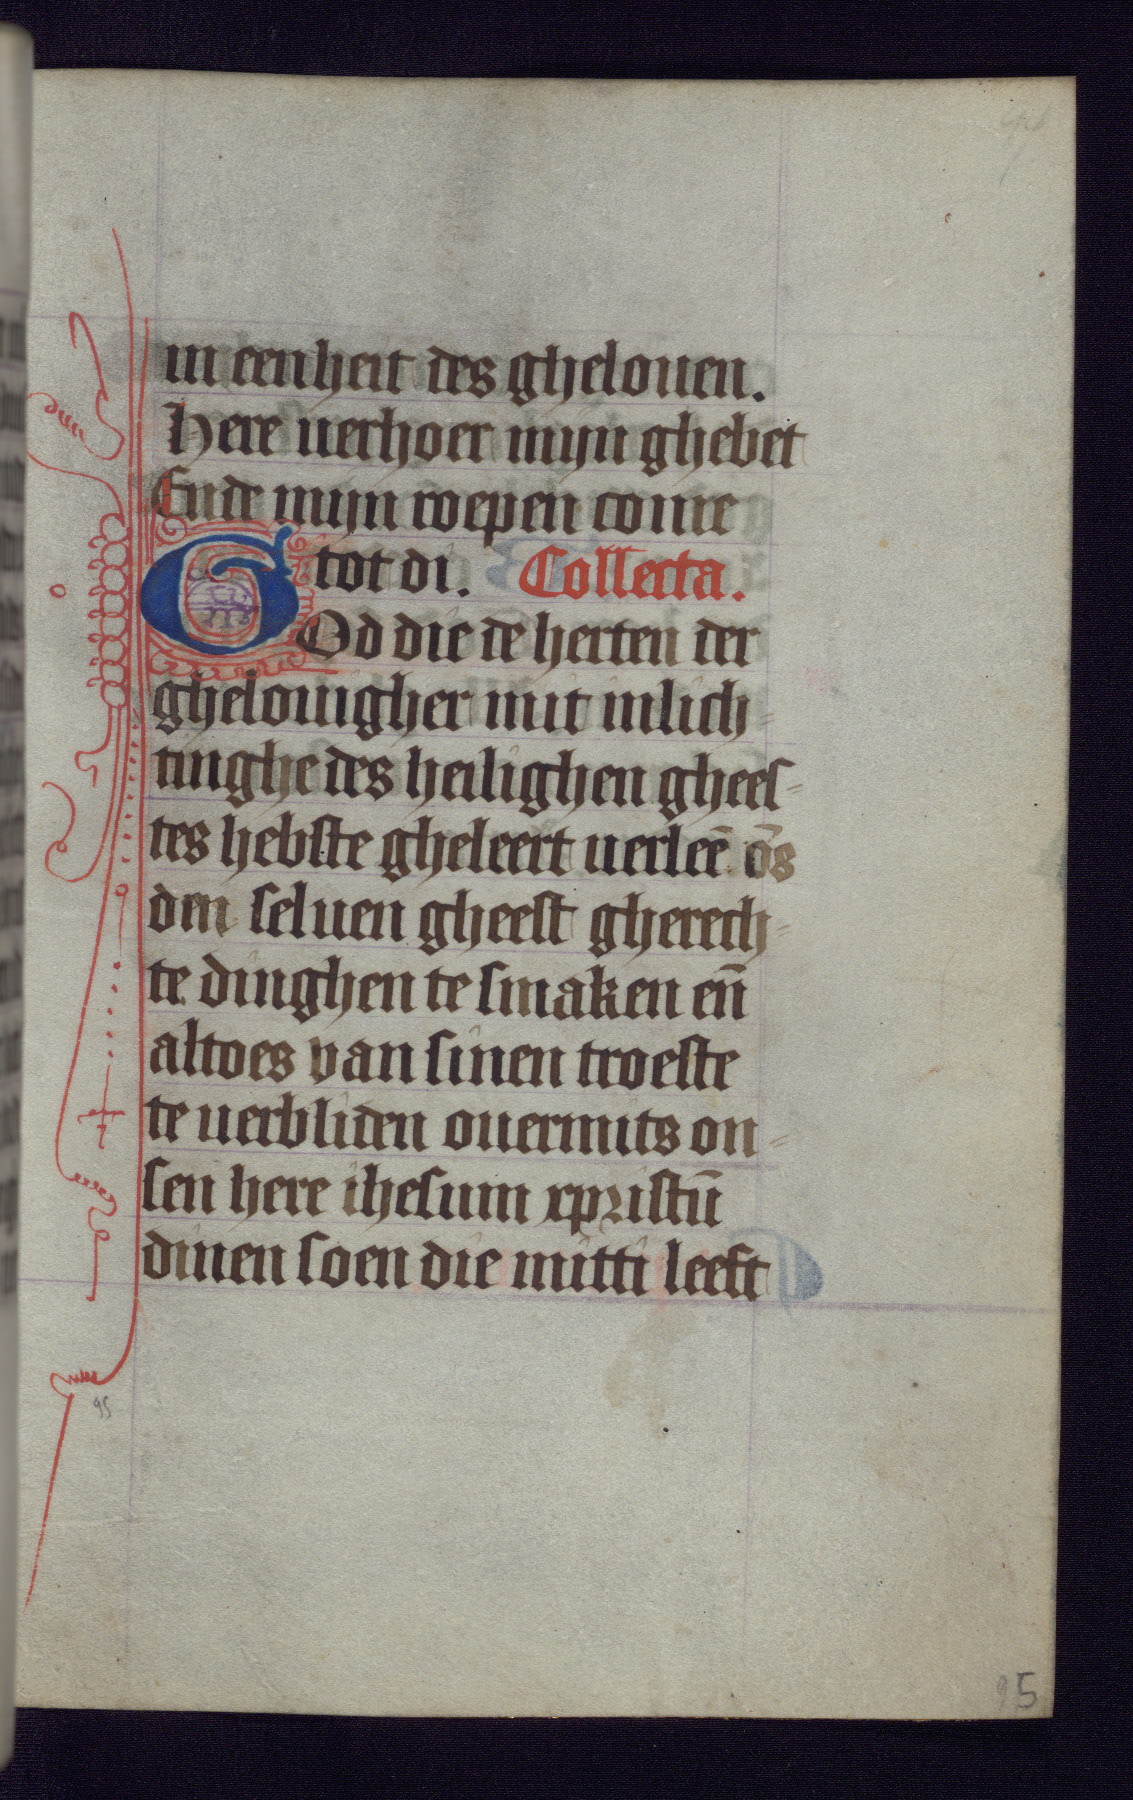 in eenheit des ghelouen.
Here uerhoer mijn ghebet
Ende mijn roepen come
tot di. Collecta.
GOd die de herten der
ghelouigher mit inlich=
tinghe des heilighen ghees=
tes hebste gheleert uerleē ōs
den seluen gheest gherech=
te dinghen te smaken en̄
altoes van sinen troeste
te uerbliden ouermits on=
sen here ihesum xpristū
dinen soen die mitti leeft
95
95